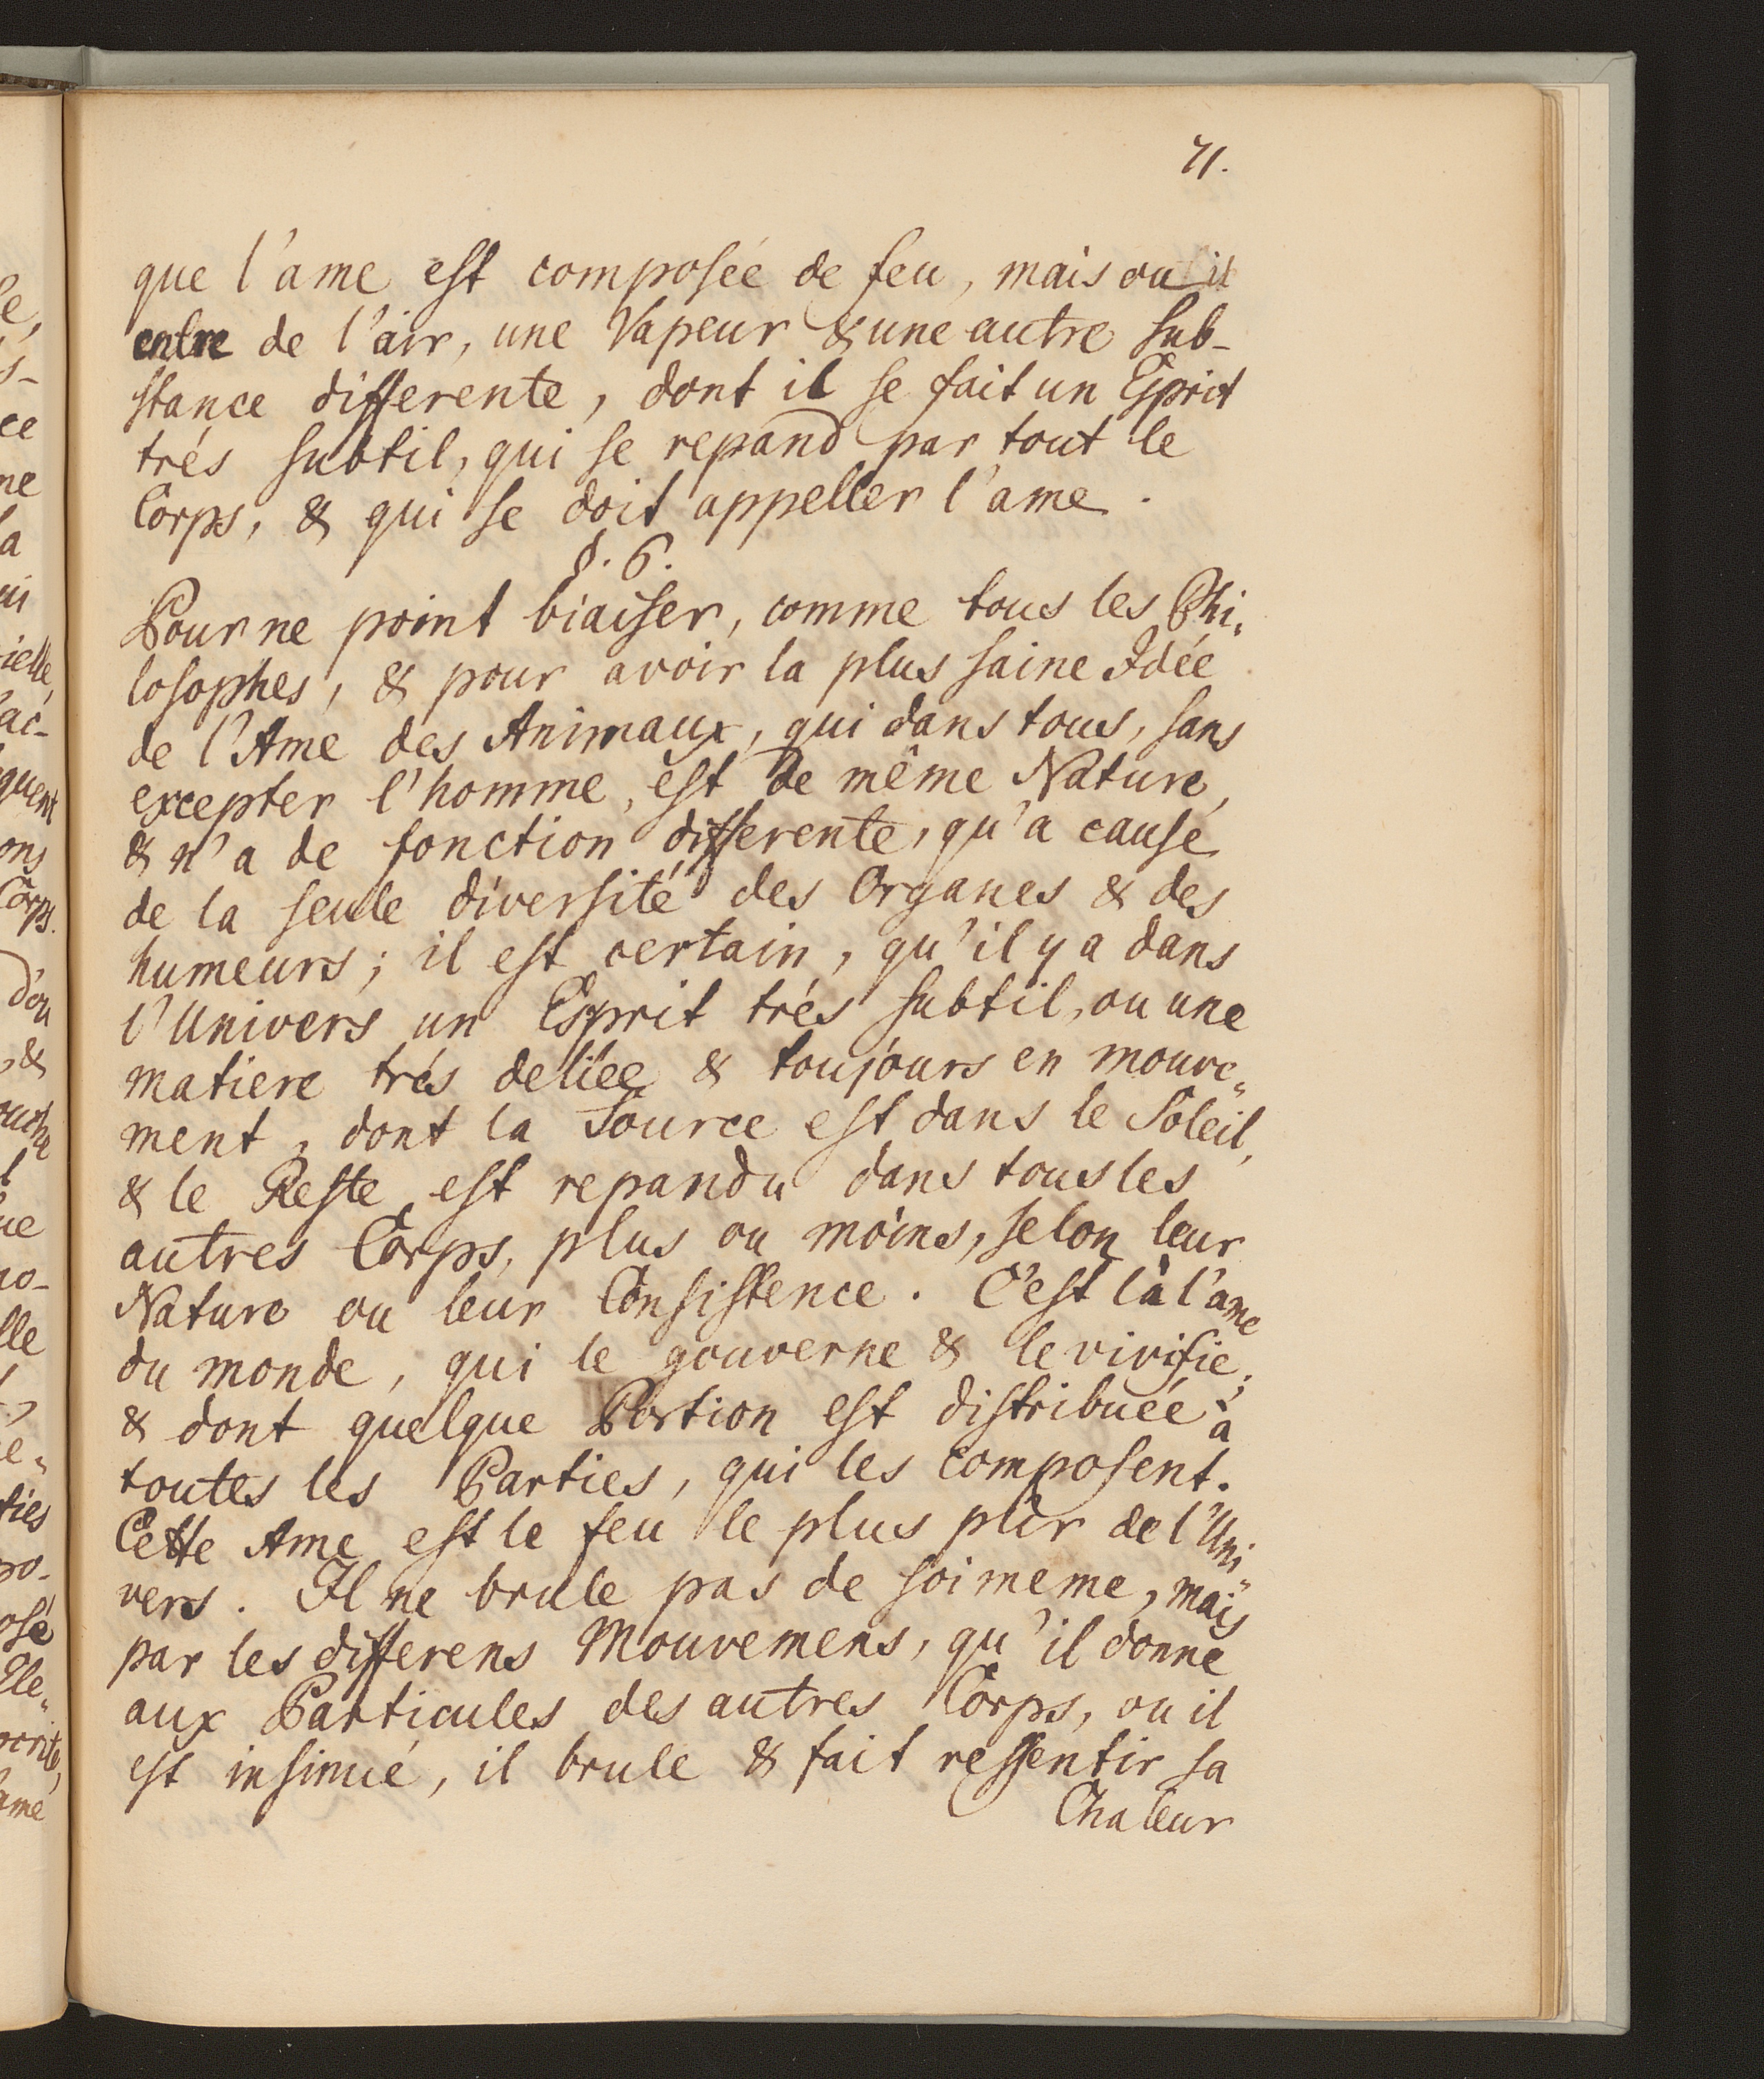 71.
que l'ame est composée de feu, mais ou il
entre de l'air, une Vapeur & une autre sub-
stance differente, dont il se fait un Esprit
trés subtil, qui se repand par tout le
Corps, & qui se doit appeller l'ame.
§. 6.
Pour ne point biaiser, comme tous les Phi-
losophes, & pour avoir la plus saine Idée
de l'Ame des Animaux, qui dans tous, sans
excepter l'homme, est de même Nature,
& n'a de fonction differente, qu'a cause
de la seule diversité des Organes & des
humeurs; il est certain, qu'il y a dans
l'Univers un Esprit trés subtil, ou une
matiere trés deliée & toujours en mouve-
ment, dont la Source est dans le Soleil,
& le Reste est repandu dans tous les
autres Corps, plus ou moins, selon leur
Nature ou leur Consistence. C'est là l'ame
du monde, qui le gouverne & le vivifie;
& dont quelque Portion est distribuée à
toutes les Parties, qui les composent.
Cette Ame est le feu le plus pur de l'Uni-
vers. Il ne brule pas de soi meme, mais
par les differens Mouvemens, qu'il donne
aux Particules des autres Corps, ou il
est insinué, il brule & fait ressentir sa
Chaleur